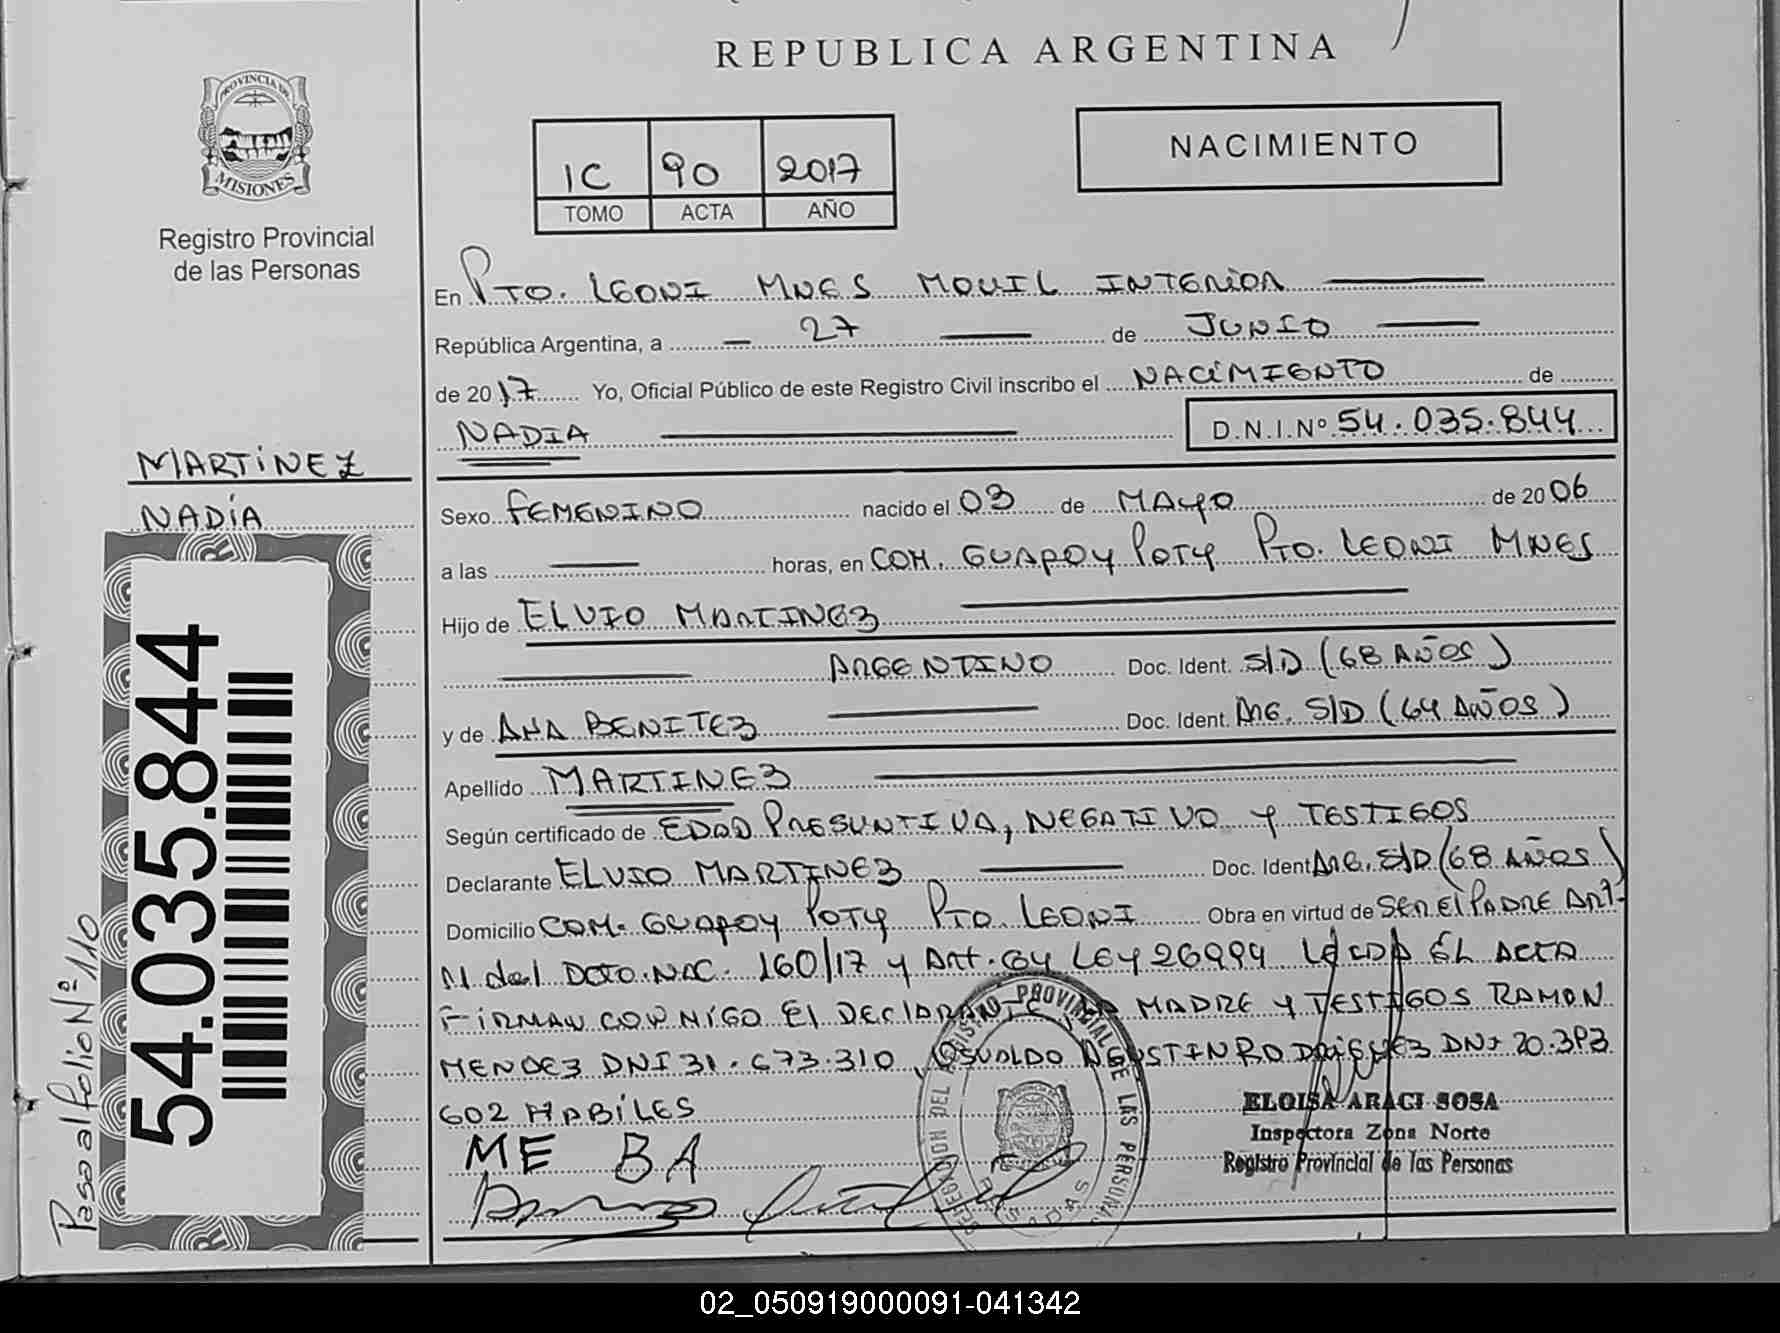 REPUBLICA ARGENTINA
PROVINCIA DE
MISIONES
Registro Provincial
de las Personas
IC 90 2017
TOMO ACTA AÑO
NACIMIENTO
En PTO. LEONI MNES MOVIL INTERIOR
República Argentina, a 27 de JUNIO
de 2017 Yo, Oficial Público de este Registro Civil inscribo el NACIMIENTO de
NADIA D.N.I.Nº 54.035.844
MARTINEZ
NADIA
Sexo FEMENINO nacido el 03 de MAYO de 2006
a las horas, en COM. GUAPOY POTY PTO. LEONI MNES
Hijo de ELVIO MARTINEZ
ARGENTINO Doc. Ident. S/D (68 AÑOS)
y de ANA BENITEZ Doc. Ident. ARG. S/D (64 AÑOS)
Apellido MARTINEZ
Según certificado de EDAD PRESUNTIVA, NEGATIVO Y TESTIGOS
Declarante ELVIO MARTINEZ Doc. Ident ARG. S/D (68 AÑOS)
Domicilio COM. GUAPOY POTY PTO. LEONI Obra en virtud de SER El PADRE ART
11 del DCTO. NAC. 160/17 y Art. 64 LEY 26994 LEIDA EL ACTA
FIRMAN CONMIGO El DEClARANTE, LA MADRE Y TESTIGOS RAMON
MENDEZ DNI 31.673.310, OSVALDO AGUSTIN RODRIGUEZ DNI 20.393
602 HABILES
ME BA
ELOISA ARACI SOSA
Inspectora Zona Norte
Registro Provincial de las Personas
54.035.844
Pasa al Folio Nº 110
02_050919000091-041342